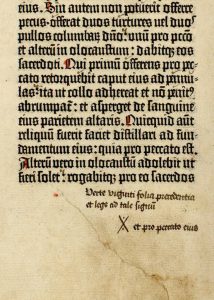 eius. Sin autem non potuerit offerre
pecus: offerat duos turtures vel duos
pullos columbarū dn̄o: unū pro pctō
et alterū in olocaustum: dabitqz eos
sacerdoti. Qui primū offerens pro pec-
cato retorquebit caput eius ad pinnu-
las: ita ut collo adhereat et nō penit9
abrumpat̄: et asperget de sanguine
eius parietem altaris. Quicquid autē
reliquū fuerit faciet distillari ad fun-
damentum eius: quia pro peccato est.
Alterū vero in olocaustū adolebit ut
fieri solet: rogabitqz pro eo sacerdos
Verte viginti folia precedentia
et lege ad tale signū
X et pro peccato eius